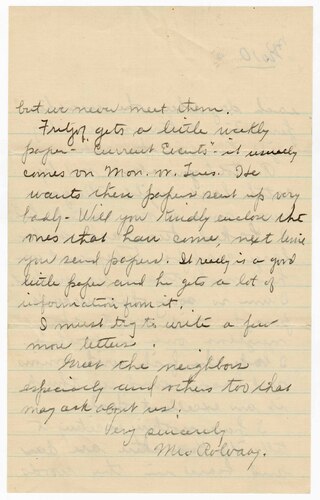 but we never meet them.
Fritjof gets a little weekly
paper - "Current Events" - it usually
comes on Mon. or Tues. He
wants these papers sent up very
badly - Will you kindly enclose the
ones that have come, next time
you send papers. It really is a good
little paper and he gets a lot of
information from it.
I must try to write a few
more letters.
Greet the neighbors
especially and others too that
may ask about us.
Very sincerely,
Mrs Rolvaag.